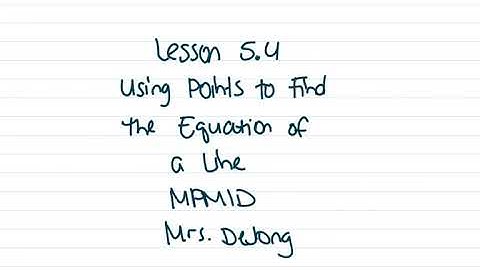 Lesson 5.4
Using Points to Find
the Equation of
a Line
MPM1D
Mrs. DeJong